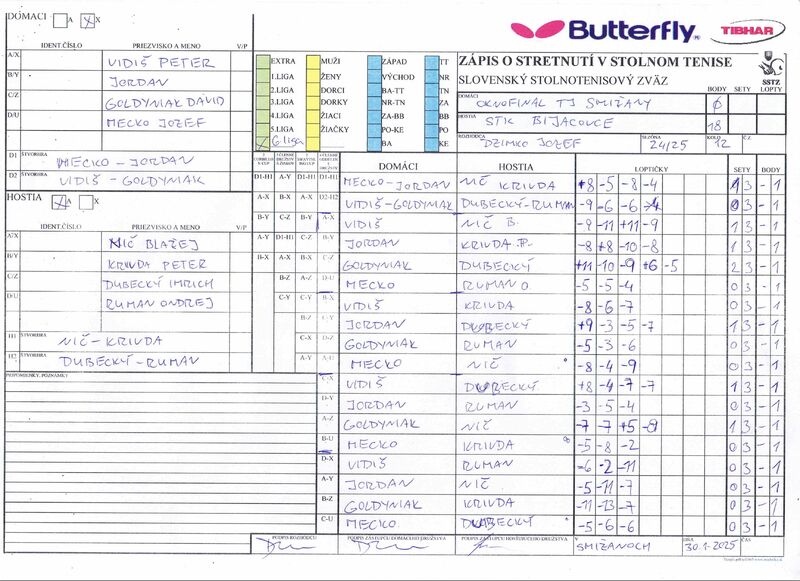 DOMÁCI A X
IDENT.ČÍSLO PRIEZVISKO A MENO V/P
A/X VIDIŠ PETER
B/Y JORDAN
C/Z GOLDYNIAK DÁVID
D/U MECKO JOZEF
D1 ŠTVORHRA MECKO - JORDAN
D2 ŠTVORHRA VIDIŠ - GOLDYNIAK
HOSTIA A X
IDENT.ČÍSLO PRIEZVISKO A MENO V/P
A/X NIČ BLAŽEJ
B/Y KRIVDA PETER
C/Z DUBECKÝ IMRICH
D/U RUMAN ONDREJ
H1 ŠTVORHRA NIČ - KRIVDA
H2 ŠTVORHRA DUBECKÝ - RUMAN
PRIPOMIENKY, POZNÁMKY
Butterfly TIBHAR
EXTRA MUŽI ZÁPAD TT
1.LIGA ŽENY VÝCHOD NR
2.LIGA DORCI BA-TT TN
3.LIGA DORKY NR-TN ZA
4.LIGA ŽIACI ZA-BB BB
5.LIGA ŽIAČKY PO-KE PO
6.liga BA KE
ZÁPIS O STRETNUTÍ V STOLNOM TENISE
SLOVENSKÝ STOLNOTENISOVÝ ZVÄZ
SSTZ
BODY SETY LOPTY
DOMÁCI OKNOFINAL TJ SMIŽANY 0
HOSTIA STK BIJACOVCE 18
ROZHODCA DZIMKO JOZEF SEZÓNA 24/25 KOLO 12 Č.Z
DOMÁCI HOSTIA LOPTIČKY SETY BODY
D1-H1 A-Y D1-H1 D1-H1 MECKO-JORDAN NIČ KRIVDA +8 -5 -8 -4 1 3 - 1
A-X B-X A-X D2-H2 VIDIŠ-GOLDYNIAK DUBECKÝ-RUMAN -9 -6 -6 0 3 - 1
B-Y C-Z B-Y A-X VIDIŠ NIČ B. -8 -11 +11 -9 1 3 - 1
A-Y D1-H1 C-Z B-Y JORDAN KRIVDA P. -8 +8 -10 -8 1 3 - 1
B-X A-X B-X C-Z GOLDYNIAK DUBECKÝ +11 -10 -9 +6 -5 2 3 - 1
B-Z A-Z D-U MECKO RUMAN O. -5 -5 -4 0 3 - 1
C-Y C-Y B-X VIDIŠ KRIVDA -8 -6 -7 0 3 - 1
B-Z C-Y JORDAN DUBECKÝ +9 -3 -5 -7 1 3 - 1
C-X D-Z GOLDYNIAK RUMAN -5 -3 -6 0 3 - 1
A-Y A-U MECKO NIČ -8 -4 -9 0 3 - 1
C-X VIDIŠ DUBECKÝ +8 -4 -7 -7 1 3 - 1
D-Y JORDAN RUMAN -3 -5 -4 0 3 - 1
A-Z GOLDYNIAK NIČ -7 -7 +5 -8 1 3 - 1
B-U MECKO KRIVDA -5 -8 -2 0 3 - 1
D-X VIDIŠ RUMAN -6 -2 -11 0 3 - 1
A-Y JORDAN NIČ -5 -11 -7 0 3 - 1
B-Z GOLDYNIAK KRIVDA -11 -13 -7 0 3 - 1
C-U MECKO DUBECKÝ -5 -6 -6 0 3 - 1
PODPIS ROZHODCU PODPIS ZÁSTUPCU DOMÁCEHO DRUŽSTVA PODPIS ZÁSTUPCU HOSŤUJÚCEHO DRUŽSTVA V SMIŽANOCH DŇA 30.1.2025 ČAS